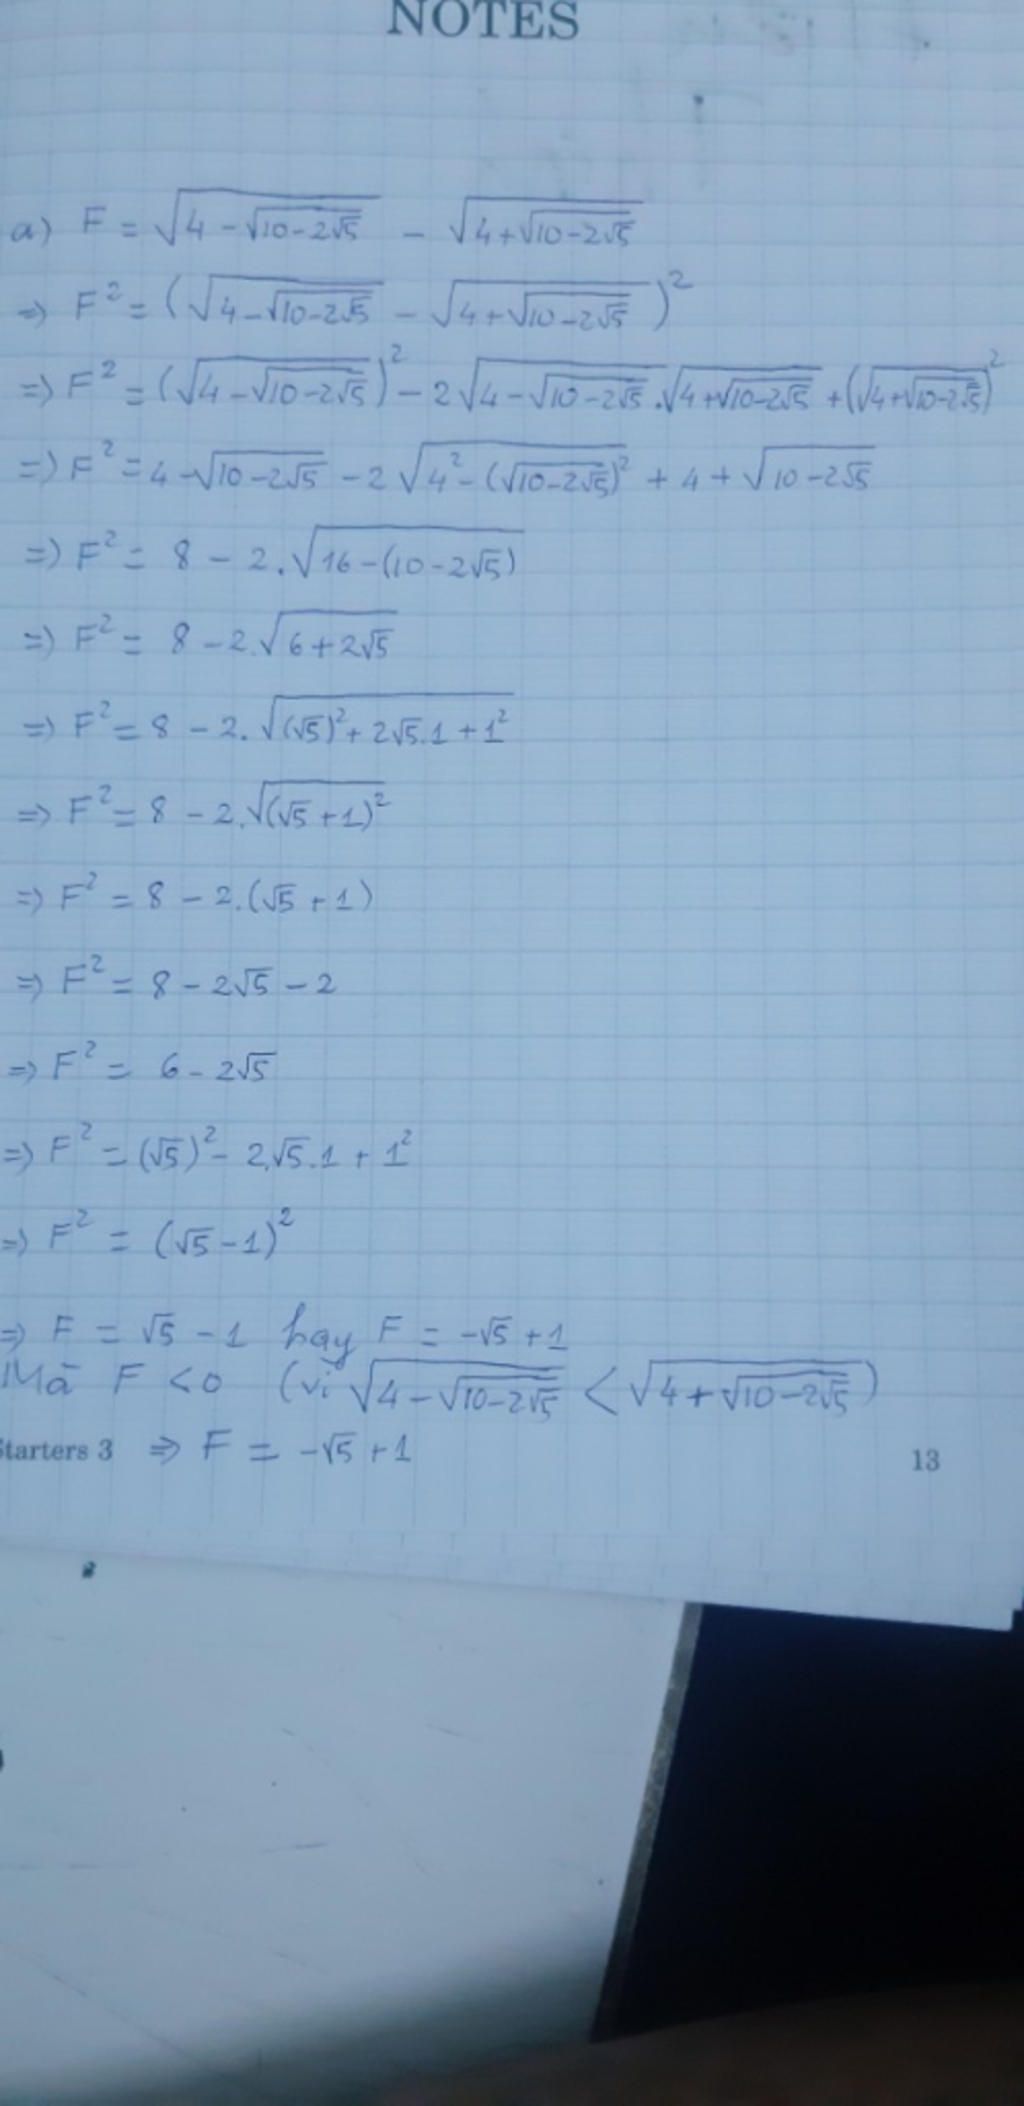 NOTES
a) F = √(4 - √(10 - 2√5)) - √(4 + √(10 - 2√5))
=> F² = (√(4 - √(10 - 2√5)) - √(4 + √(10 - 2√5)))²
=> F² = (√(4 - √(10 - 2√5)))² - 2√(4 - √(10 - 2√5)).√(4 + √(10 - 2√5)) + (√(4 + √(10 - 2√5)))²
=> F² = 4 - √(10 - 2√5) - 2√(4² - (√(10 - 2√5))²) + 4 + √(10 - 2√5)
=> F² = 8 - 2.√(16 - (10 - 2√5))
=> F² = 8 - 2.√(6 + 2√5)
=> F² = 8 - 2.√((√5)² + 2√5.1 + 1²)
=> F² = 8 - 2.√((√5 + 1)²)
=> F² = 8 - 2.(√5 + 1)
=> F² = 8 - 2√5 - 2
=> F² = 6 - 2√5
=> F² = (√5)² - 2.√5.1 + 1²
=> F² = (√5 - 1)²
=> F = √5 - 1 hay F = -√5 + 1
Mà F < 0 (vì √(4 - √(10 - 2√5)) < √(4 + √(10 - 2√5)))
Starters 3 => F = -√5 + 1 13